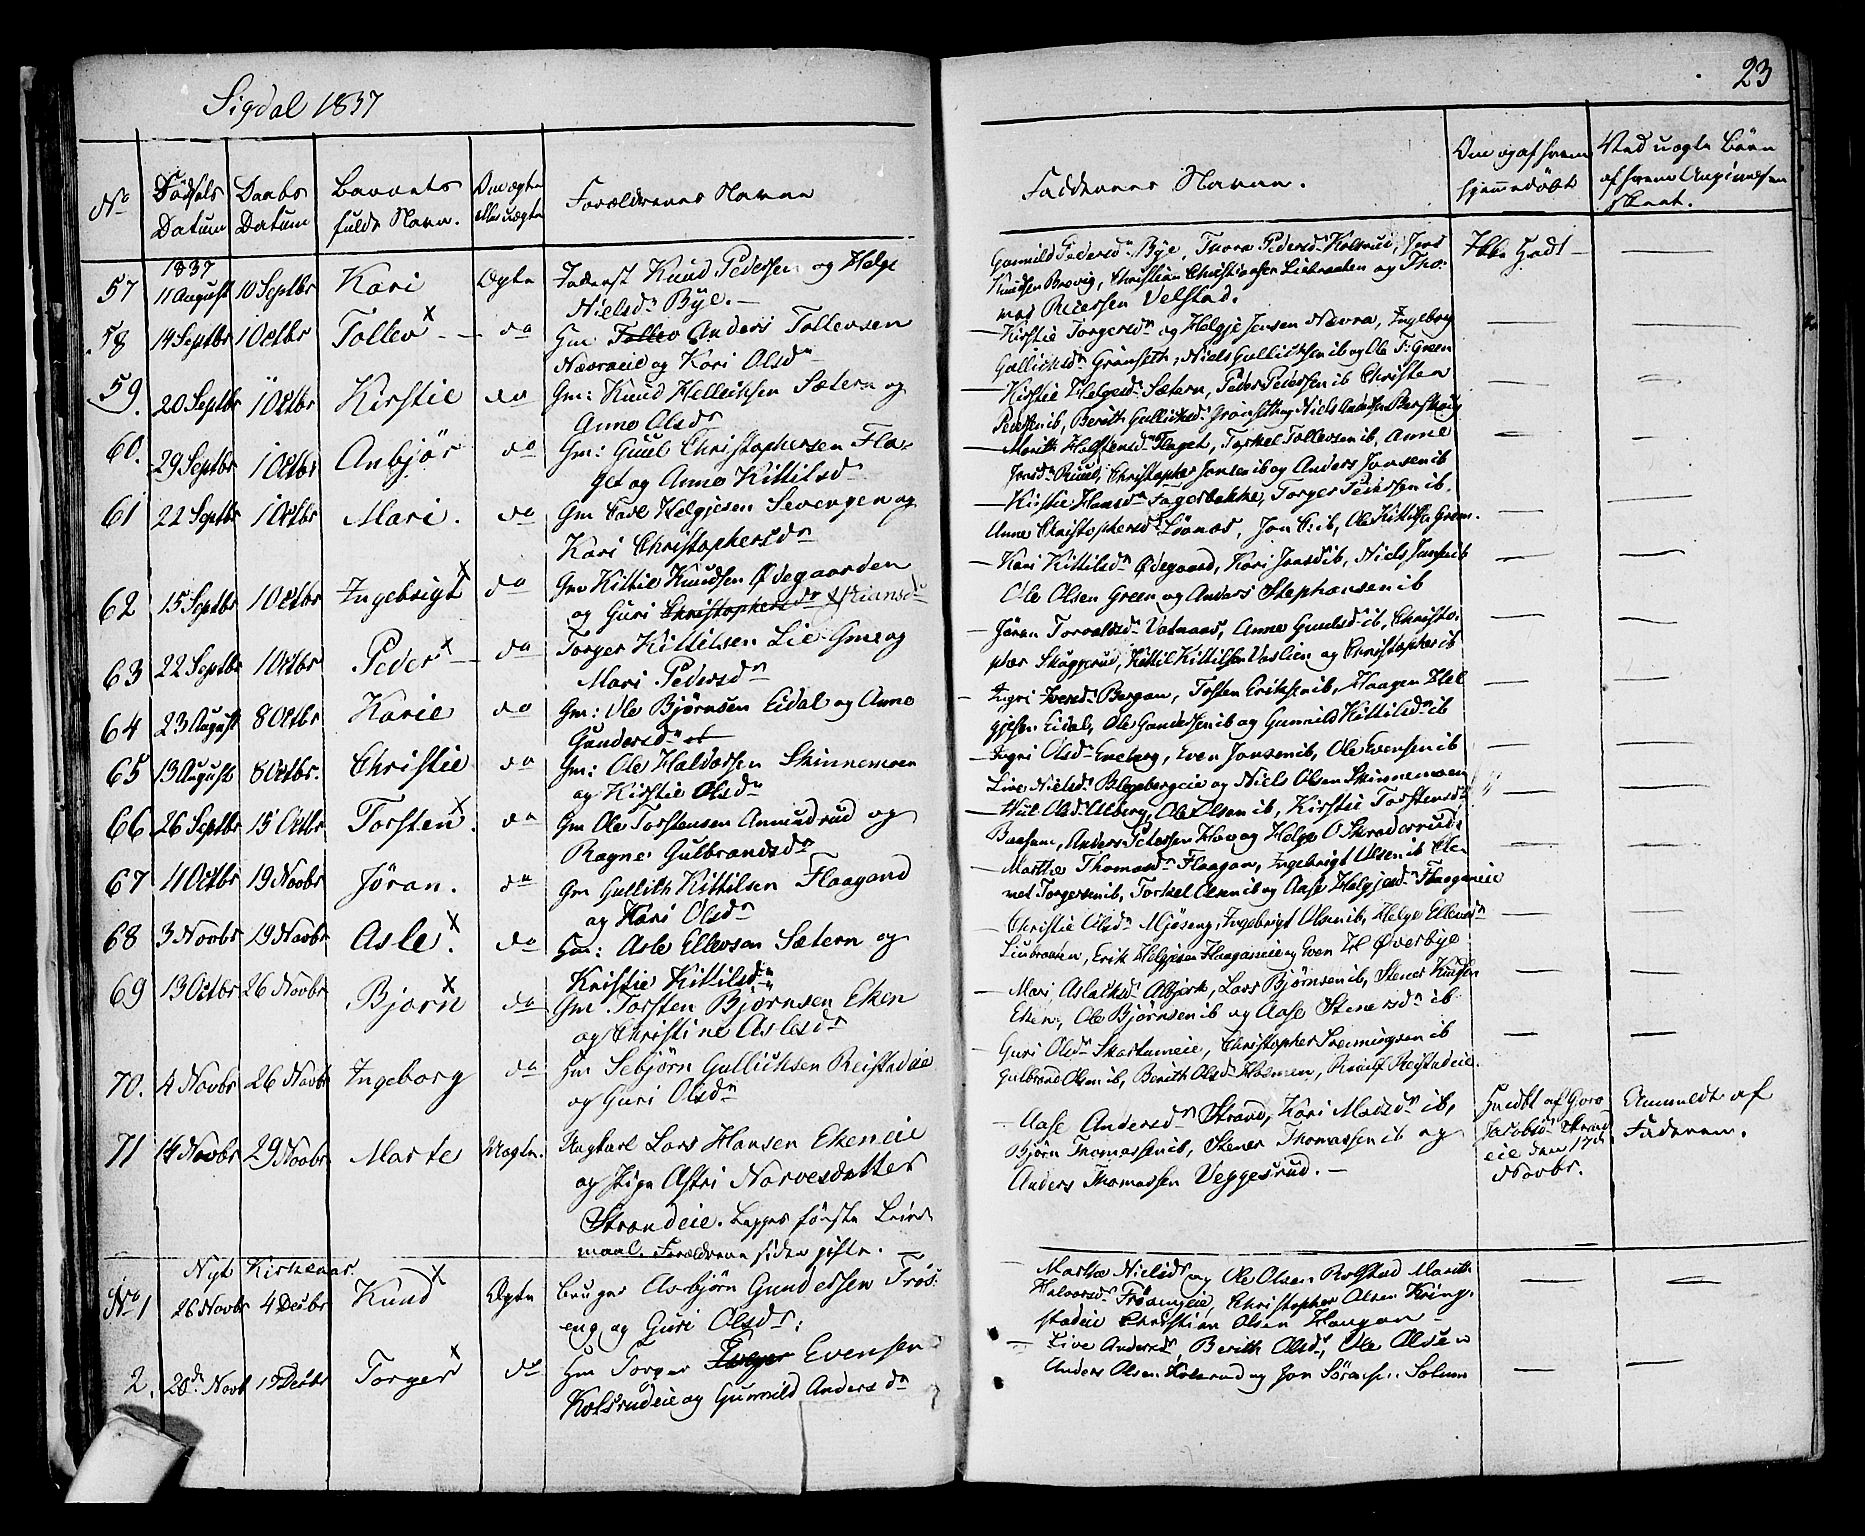 Sigdal 1837
23
No
Fødsels Datum
Daabs Datum
Barnets fulde Navn.
Om ægte eller uægte
Forældrenes Navne
Faddernes Navne.
Om og af hvem hjemmedøbt
Ved uægte Børn af hvem Angivelsen skeet.
1837
57 11 August 10 Septbr Kari Ægte Inderst Knud Pedersen og Helge
Nielsdn Bye. —
Gunnild Pedersdn Bye, Thora Pedersdn Kolsrud, Jens
Knudsen Brevig, Christian Christiansen Liebraaten og Tho-
mas Velstad.
Ikke Hjdt —
58 14 Septbr 1 Octbr Tollev x — do Gm Tollev Anders Tollevsen
Nævraeie og Kari Olsdn
— Kirstie Torgersdn og Helgje Jensen Nævra, Ingeborg
Gullichsdn Grønseth, Niels Gullichsen ib og Ole Green
59. 20 Septbr 1 Octbr Kirstie do Gm: Knud Hellechsen Sætern og
Anne Olsdn
— Kirstie Helgesdn Sætern, Peder Pedersen ib Christen
Pedersen ib, Berith Gullichsdn Grønseth og Niels Andersen
60. 29 Septbr 1 Octbr Anbjør do Gm: Guul Christophersen Fla-
get og Anne Kittilsdn
— Marith Holstensdn Flaget, Torkel Tollevsen ib, Anne
Jensdn Ruud, Christopher Jensen ib og Anders Jensen ib
61 22 Septbr 1 Octbr Mari. do Gm Helgjesen Sevengen og
Kari Christophersdn
— Kirstie Hansdn Fagerbakke, Torger Pedersen ib,
Anne Christophersdn Lønnes, Jon ib, Ole Kittilsen Grøn.
62 15 Septbr 1 Octbr Ingebrigt x do Gm Kittil Knudsen Ødegaarden
og Guri Christophersdn
— Kari Kittilsdn Ødegaard, Kari Jensd ib, Niels Jensen ib
Ole Olsen Green og Anders Stephansen ib
63 22 Septbr 1 Octbr Peder x — do Torger Kittilsen Lie Gm og
Mari Pedersdn
— Jøran Torvalsdn Vatnaas, Anne Gundsdn ib, Christo-
pher Skuggerud, Kittil Kittilsen Vaslien og Christopher ib
64 23 August 8 Octbr Karie do Gm: Ole Bjørnsen Eidal og Anne
Gundersdn
— Ingri Iversdn Bergan, Torsten Eriksen ib, Haagen Hel
gjesen Eidal, Ole Gundersen ib og Gunnild Kittilsdn ib
65 13 August 8 Octbr. Christie do Gm: Ole Haldorsen Skinnemoen
og Kirstie Olsdn
— Ingri Olsdn Eneberg, Even Jensen ib, Ole Evensen ib
Live Nielsdn og Niels Olsen Skinnemoen
66 26 Septbr 15 Octbr Torsten x. do Gm Ole Torstensen Anmudrud og
Ragne Gulbrandsdn
— Olsdn Ulberg, Ole Olsen ib, Kirstie Torstensdn
Baasum, Anders Petersen Hov og Helge O Skraderruds
67 11 Octbr 19 Novbr Jøran. do Gm Gullith Kittilsen Flaagand
og Kari Olsdn
— Marthe Thomasdn Flaagan, Ingebrigt Olsen ib
Torgersen ib, Torkel Olsen ib og Aase Helgjesdn Flaaganeie
68 3 Novbr 19 Novbr Asle x. do Gm: Asle Ellevsen Sætern og
Kristie Kittilsdn
— Christie Olsdn Mjøseng, Ingebrigt Olsen ib, Helge Ellevsdn
Liebraaten, Erik Helgjesen Flaaganeie og Even H Øverbye
69 13 Octbr 26 Novbr Bjørn x do Gm Torsten Bjørnsen Eken
og Christine Aslesdn
— Mari Aslaksdn, Lars Bjørnsen ib, Stener Knudsen
Eken, Ole Bjørnsen ib og Aase Stenersdn ib
70. 4 Novbr 26 Novbr Ingeborg do Hm Sebjørn Gullichsen Reistadeie
og Guri Olsdn
— Guri Olsdn Skartumeie, Christopher ib
Gulbrand Olsen ib, Berith Olsdn Holmen, Reistadeie.
71 14 Novbr 29 Novbr Marte Uægte. Ungkarl Lars Hansen Ekeneie
og Pige Astri Narvesdatter
Strandeie. Begges første Leier-
maal. Forældrene siden gifte.
— Aase Andersdn Strand, Kari Madsdn ib,
Bjørn Thomassen ib, Stener Thomassen ib og
Anders Thomassen Veggesrud. —
Hmdbt af Goro
Jacobsdn Strand
eie den 17de
Novbr.
Anmeldt af
Faderen.
Nyt Kirkeaar.
No 1 26 Novbr 4 Decbr Knud x Ægte Bruger Asbjørn Gundersen Trøs-
eng og Guri Olsdn:
— Marthe Nielsdn og Ole Olsen Rolstad Marith
Halvorsdn, Christopher Olsen Kring-
stadeie Christian Olsen Haugan —
2. 28de Novb 15 Decbr Torger x do Hm Torger Torger Evensen
Kolsrudeie og Gunnild Andersdn
— Live Andersdn, Berith Olsdn, Ole Olsen
Anders Olsen Kolsrud og Jon Sørensen Solum